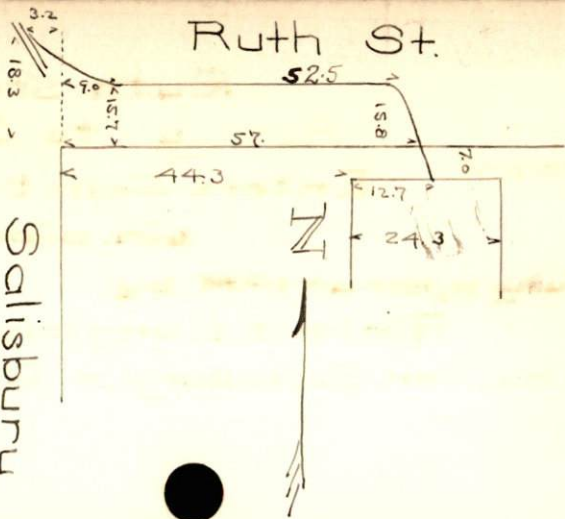 3.2
Ruth St.
18.3
9.0
52.5
15.7
15.8
57.
7.0
44.3
12.7
N
24.3
Salisbury